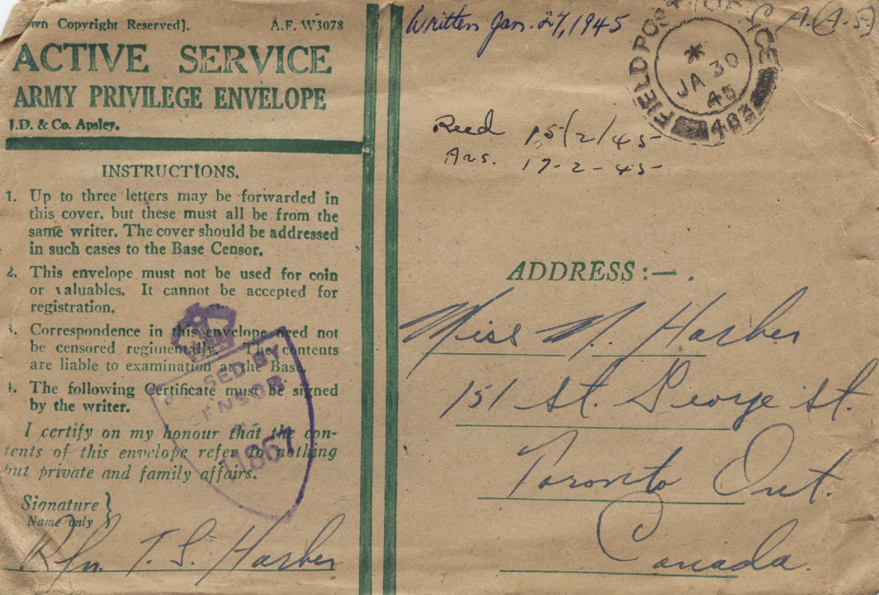 wn Copyright Reserved]. A.F. W3078
ACTIVE SERVICE
ARMY PRIVILEGE ENVELOPE
J.D. & Co. Apsley.
INSTRUCTIONS.
1. Up to three letters may be forwarded in
this cover, but these must all be from the
same writer. The cover should be addressed
in such cases to the Base Censor.
2. This envelope must not be used for coin
or valuables. It cannot be accepted for
registration.
3. Correspondence in this envelope need not
be censored regimentally. The contents
are liable to examination at the Base.
4. The following Certificate must be signed
by the writer.
I certify on my honour that the con-
tents of this envelope refer to nothing
but private and family affairs.
Signature }
Name only
Rfn. T. S. Harber
PASSED BY
CENSOR
11867
Written Jan. 27, 1945
FIELD POST OFFICE
JA 30
45
483
Recd 15/2/45
Ans. 17-2-45
ADDRESS :—
Miss M. Harber
151 St. George St.
Toronto Ont.
Canada